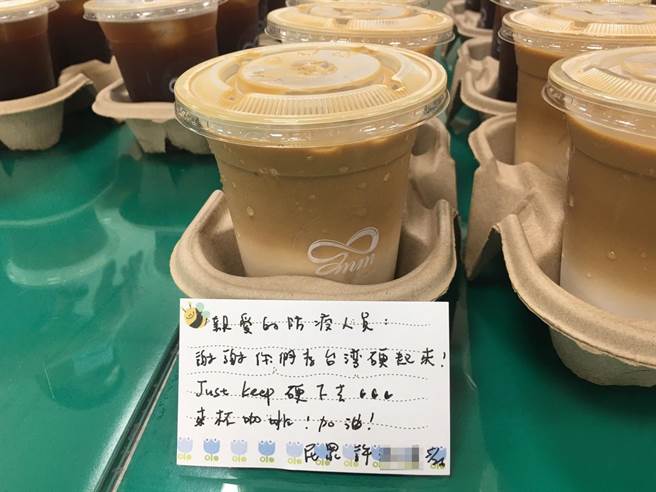 親愛的防疫人員:
謝謝你們為台灣硬起來!
Just keep 硬下去...
來杯咖啡!加油!
民眾 許